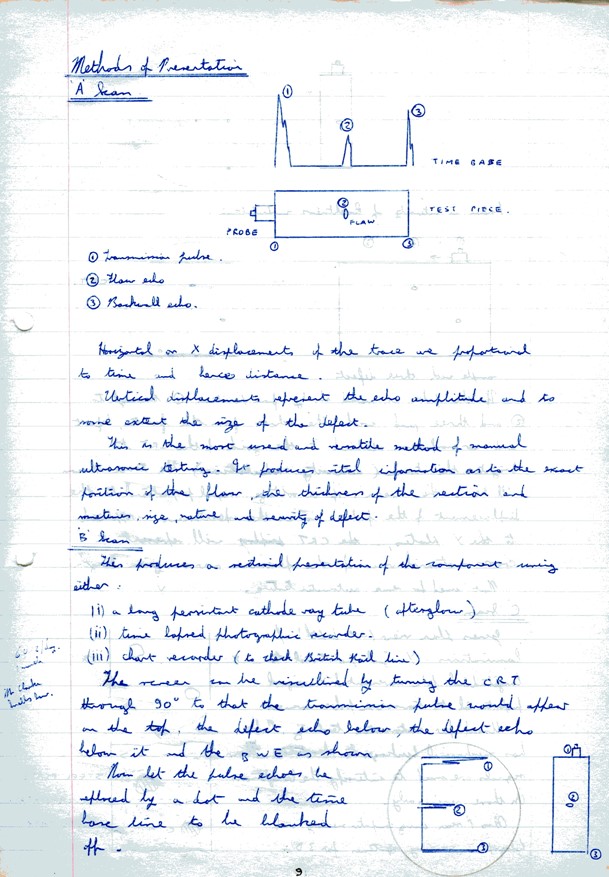 Methods of Presentation
'A' Scan
①
②
③
TIME BASE
②
FLAW
TEST PIECE.
PROBE
①
③
① Transmission pulse.
② Flaw echo
③ Backwall echo.
Horizontal or X displacements of the trace are proportional
to time and hence distance.
Vertical displacements represent the echo amplitude and to
some extent the size of the defect.
This is the most used and versatile method of manual
ultrasonic testing. It produces vital information as to the exact
position of the flaw, the thickness of the section and
sometimes, size, nature and severity of defect.
'B' Scan
This produces a sectional presentation of the component using
either:
(i) a long persistent cathode ray tube (afterglow)
(ii) time lapsed photographic recorder.
(iii) chart recorder (to check British Rail line)
The screen can be visualised by turning the CRT
through 90° so that the transmission pulse would appear
on the top, the defect echo below, the defect echo
below it and the BWE as shown
Now let the pulse echoes be
replaced by a dot and the time
base line to be blanked
off.
①
②
③
①
②
③
9